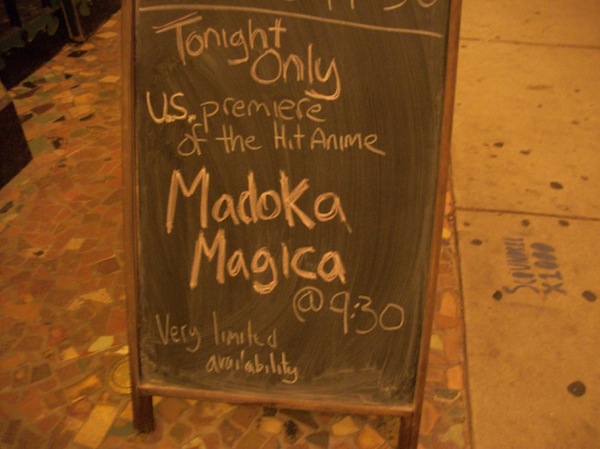 Tonight
Only
U.S. premiere
of the Hit Anime
Madoka
Magica
@ 9:30
Very limited
availability
X1000